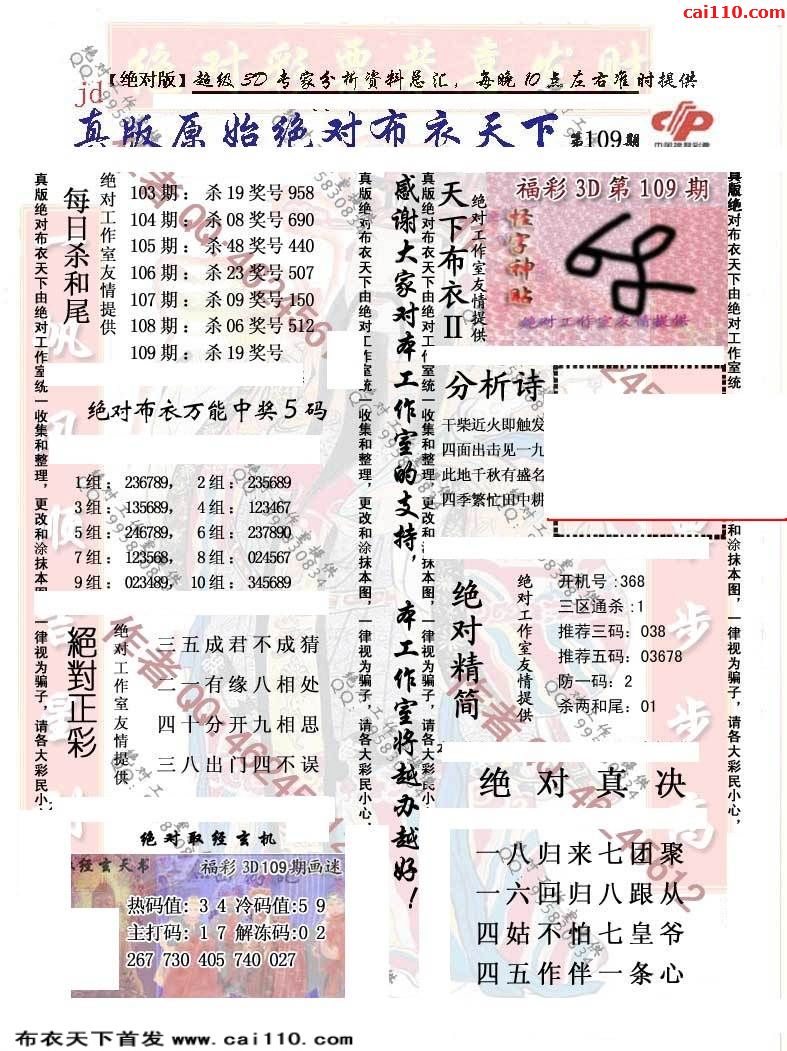 cai110.com
【绝对版】超级3D专家分析资料总汇，每晚10点左右准时提供
jd
真版原始绝对布衣天下 第109期
真版绝对布衣天下由绝对工作室统一收集和整理，更改和涂抹本图，一律视为骗子，请各大彩民小心，
每日杀和尾
绝对工作室友情提供
103期：杀19奖号958
104期：杀08奖号690
105期：杀48奖号440
106期：杀23奖号507
107期：杀09奖号150
108期：杀06奖号512
109期：杀19奖号
绝对布衣万能中奖5码
1组：236789， 2组：235689
3组：135689， 4组：123467
5组：246789， 6组：237890
7组：123568， 8组：024567
9组：023489， 10组：345689
絕對正彩
绝对工作室友情提供
三五成君不成猜
二一有缘八相处
四十分开九相思
三八出门四不误
绝对取经玄机
经玄天书 福彩3D109期画迷
热码值: 3 4 冷码值:5 9
主打码: 1 7 解冻码:0 2
267 730 405 740 027
真版绝对布衣天下由绝对工作室统一收集和整理，更改和涂抹本图，一律视为骗子，请各大彩民小心，
感谢大家对本工作室的支持，本工作室将越办越好！
真版绝对布衣天下由绝对工作室统一收集和整理，更改和涂抹本图，一律视为骗子，请各大彩民小心，
天下布衣II
绝对工作室友情提供
福彩3D第109期
怪字神贴
绝对工作室友情提供
分析诗
干柴近火即触发
四面出击见一九
此地千秋有盛名
四季繁忙田中耕
绝对精简
绝对工作室友情提供
开机号:368
三区通杀:1
推荐三码：038
推荐五码：03678
防一码：2
杀两和尾：01
绝对真决
一八归来七团聚
一六回归八跟从
四姑不怕七皇爷
四五作伴一条心
真版绝对布衣天下由绝对工作室统
和涂抹本图，一律视为骗子，请各大彩民小心，
布衣天下首发 www.cai110.com